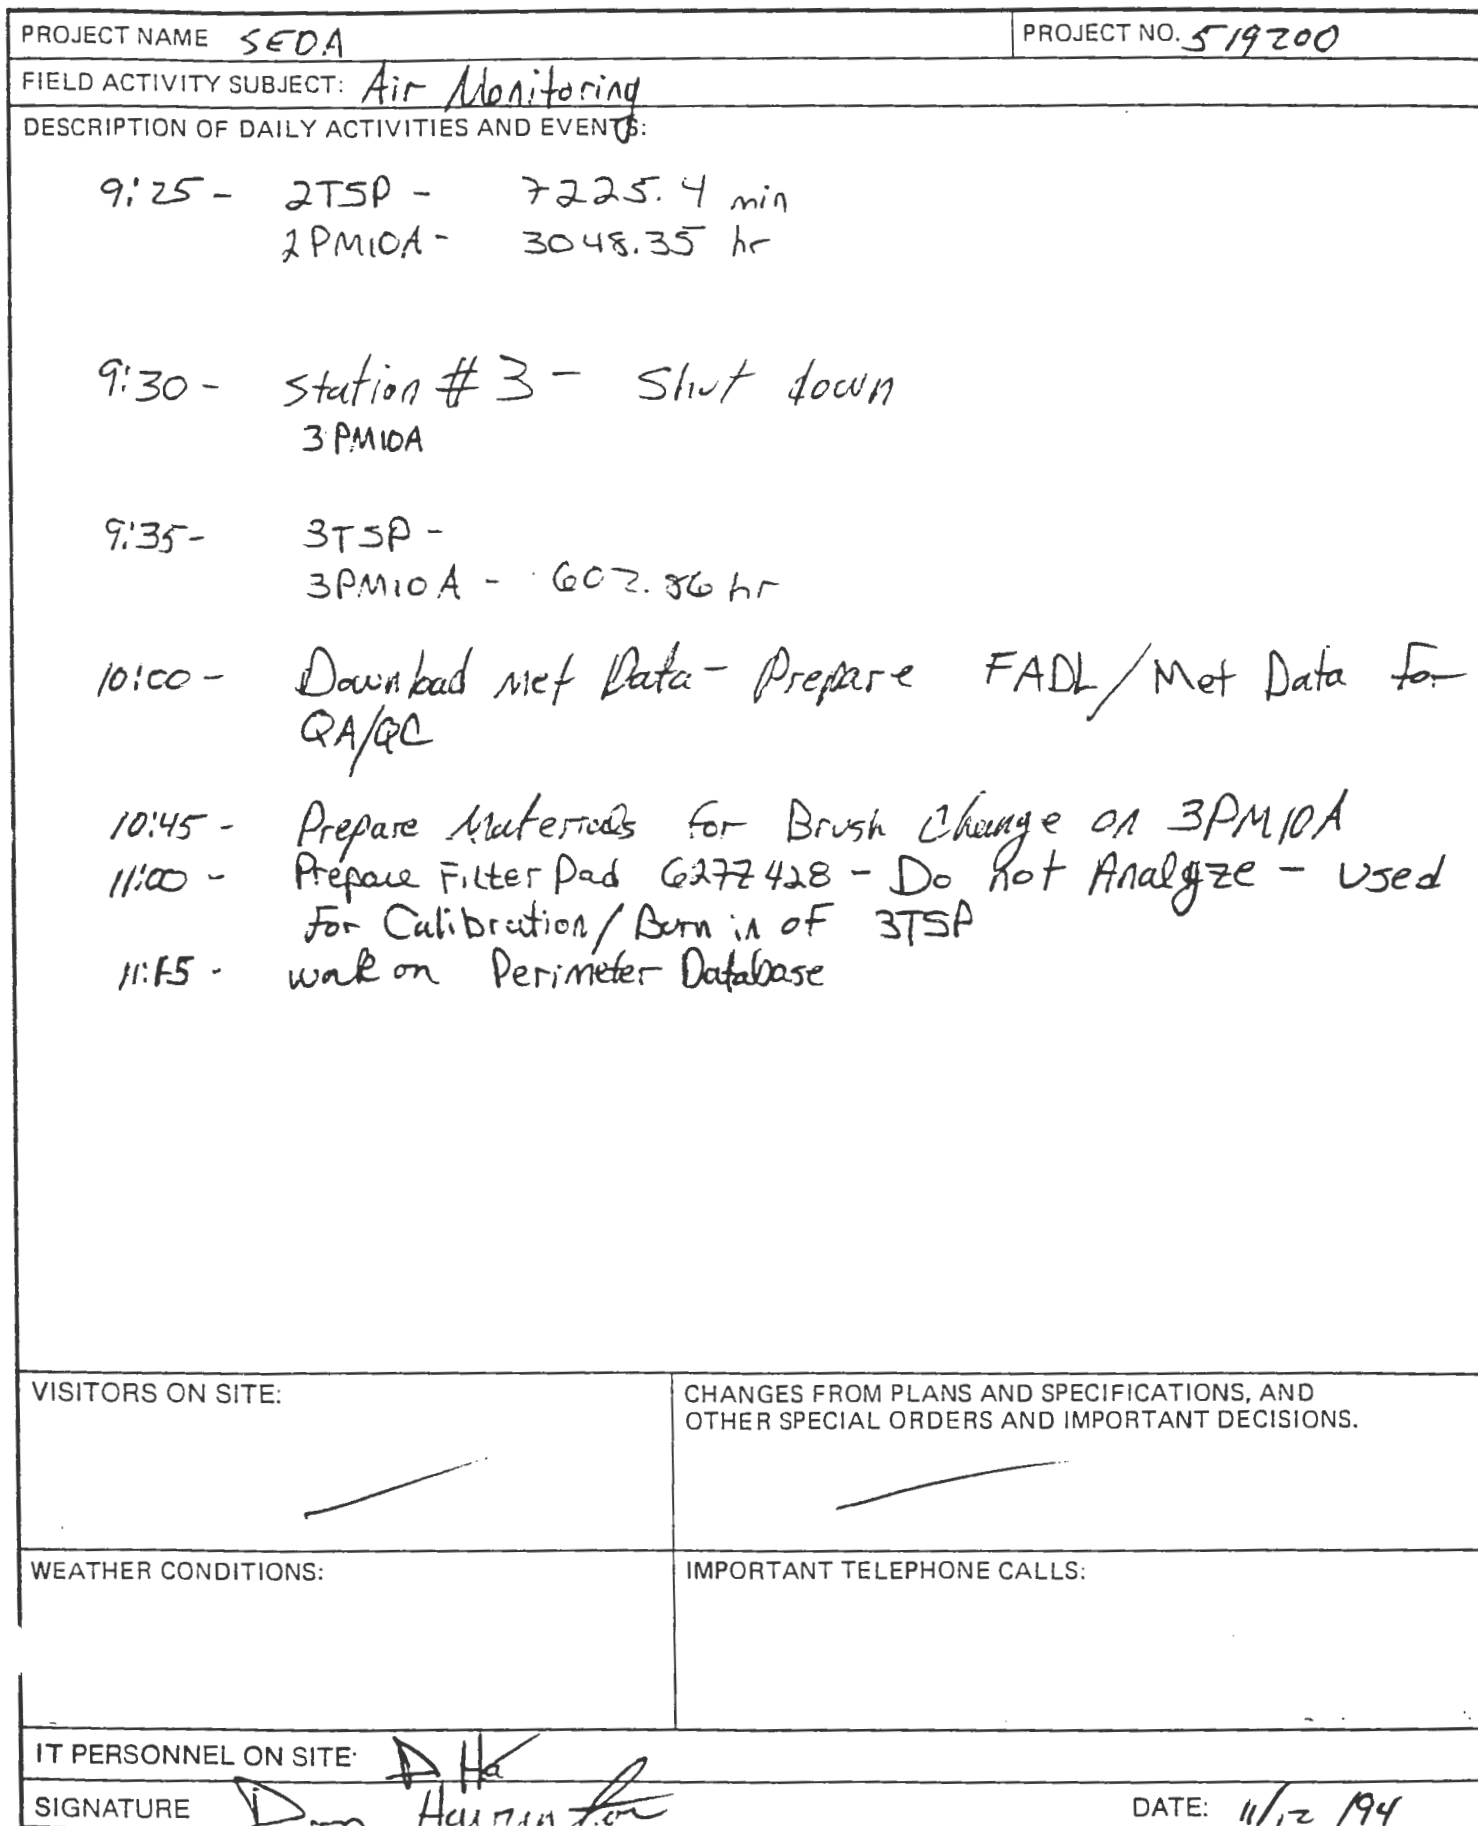 PROJECT NAME SEDA PROJECT NO. 519200
FIELD ACTIVITY SUBJECT: Air Monitoring
DESCRIPTION OF DAILY ACTIVITIES AND EVENTS:
9:25 - 2TSP - 7225.4 min
2PM10A - 3048.35 hr
9:30 - Station # 3 - Shut down
3PM10A
9:35 - 3TSP -
3PM10A - 602.86 hr
10:00 - Download Met Data - Prepare FADL/Met Data for
QA/QC
10:45 - Prepare Materials for Brush Change on 3PM10A
11:00 - Prepare Filter Pad 6277428 - Do not Analyze - Used
for Calibration/Burn in of 3TSP
11:15 - work on Perimeter Database
VISITORS ON SITE:
CHANGES FROM PLANS AND SPECIFICATIONS, AND
OTHER SPECIAL ORDERS AND IMPORTANT DECISIONS.
WEATHER CONDITIONS:
IMPORTANT TELEPHONE CALLS:
IT PERSONNEL ON SITE:
SIGNATURE DATE: 11/12/94